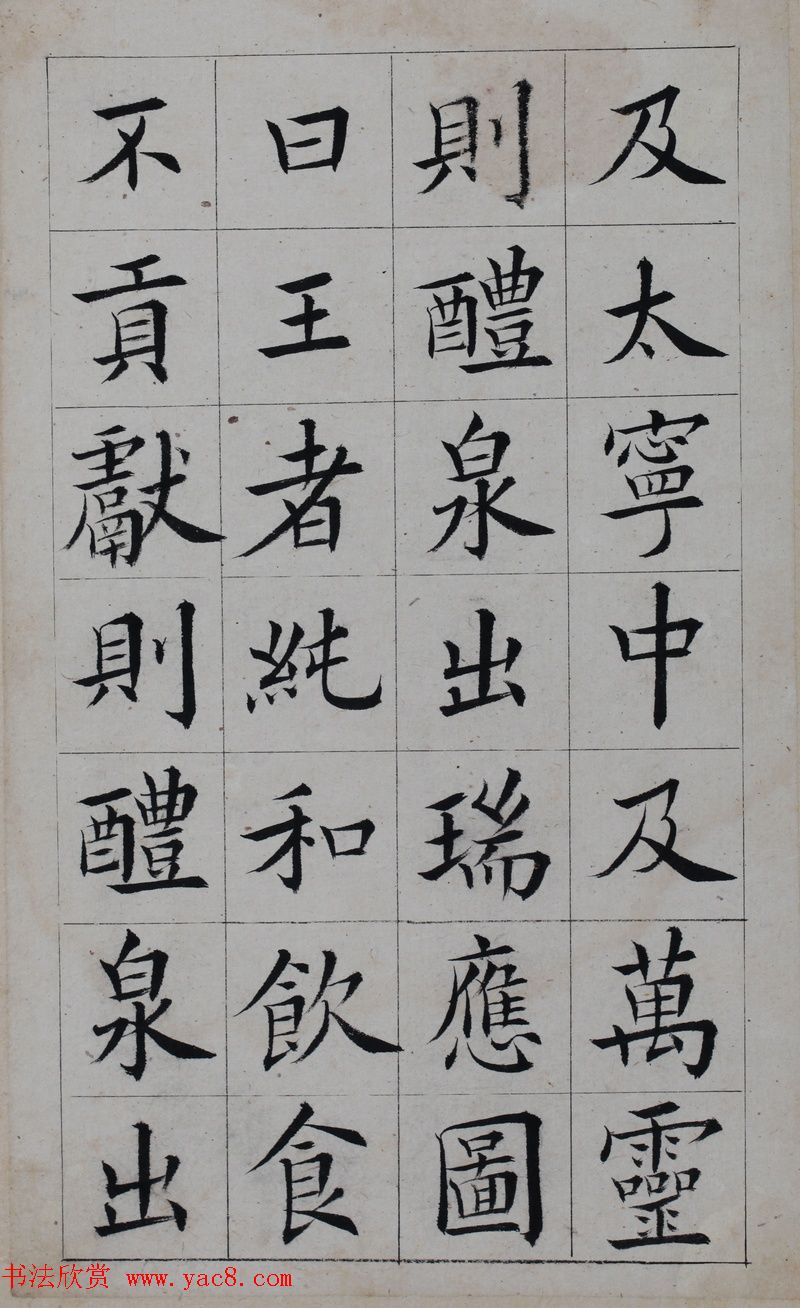 及太寧中及萬靈
則醴泉出瑞應圖
曰王者純和飲食
不貢獻則醴泉出
书法欣赏 www.yac8.com